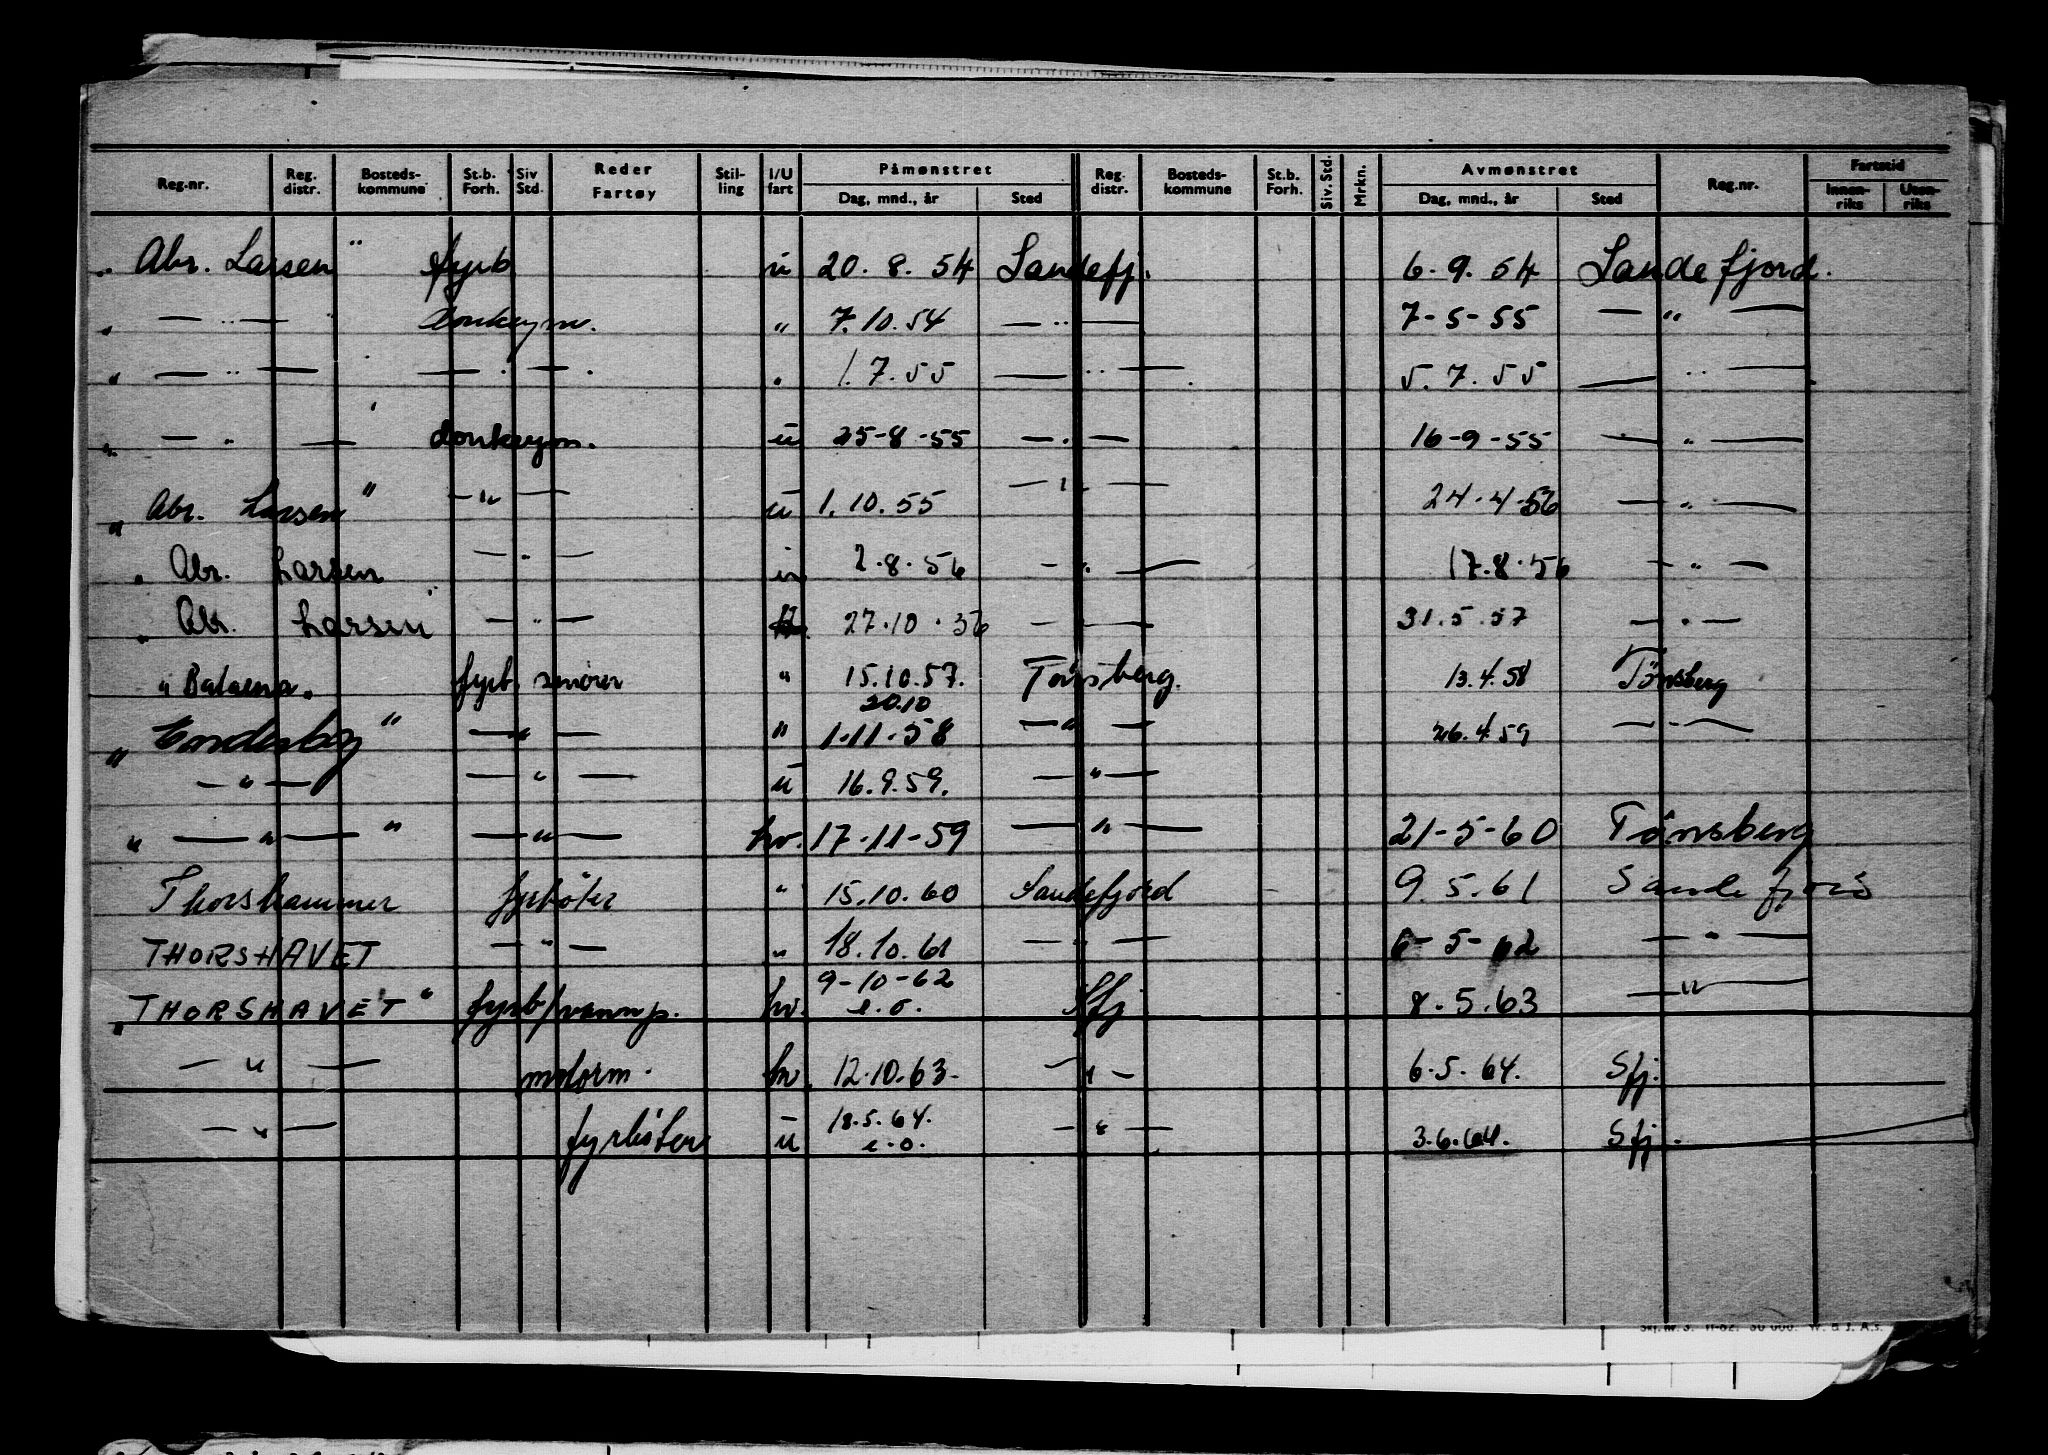 Reg.nr. Reg. distr. Bosteds-kommune St.b. Forh. Siv Std. Reder Fartøy Stil-ling I/U fart Påmønstret Dag, mnd., år Sted Reg. distr. Bosteds-kommune St.b. Forh. Siv. Std. Mrkn. Avmønstret Dag, mnd., år Sted Reg.nr. Fartstid Innen-riks Uten-riks
" Abr. Larsen " fyrb u 20.8.54 Sandefj. 6.9.54 Sandefjord.
" — " — donkeym. " 7.10.54 — " — 7-5-55 — " —
" — " — — " — " 1.7.55 — " — 5.7.55 — " —
" — " — " donkeym. u 25-8-55 — " — 16-9-55 — " —
" Abr. Larsen " — " — u 1.10.55 — " — 24.4.56 — " —
" Abr. Larsen " — " — u 2.8.56 — " — 17.8.56 — " —
" Abr. Larsen " — " — 27.10.56 — " — 31.5.57 — " —
" Balaena " fyrb smører " 15.10.57. Tønsberg. 13.4.58 Tönsberg
20.10
" Enderby " — " — " 1-11-58 — " — 26.4.59 — " —
— " — — " — u 16.9.59. — " —
" — " — " — " — hv. 17-11-59 — " — 21-5-60 Tönsberg
Thorshammer fyrböter " 15.10.60 Sandefjord 9.5.61 Sandefjord
THORSHAVET — " — " 18.10.61 — " — 6-5-62 — " —
" THORSHAVET " fyrb/vannp. hv. 9-10-62 e.o. Sfj 8.5.63 — " —
— " — motorm. hv. 12.10.63. — " — 6.5.64. Sfj.
— " — fyrböter u 18.5.64. e.o. — " — 3.6.64. Sfj.
Skj. nr. 3. 11-62. 50 000. W. & J. A.s.